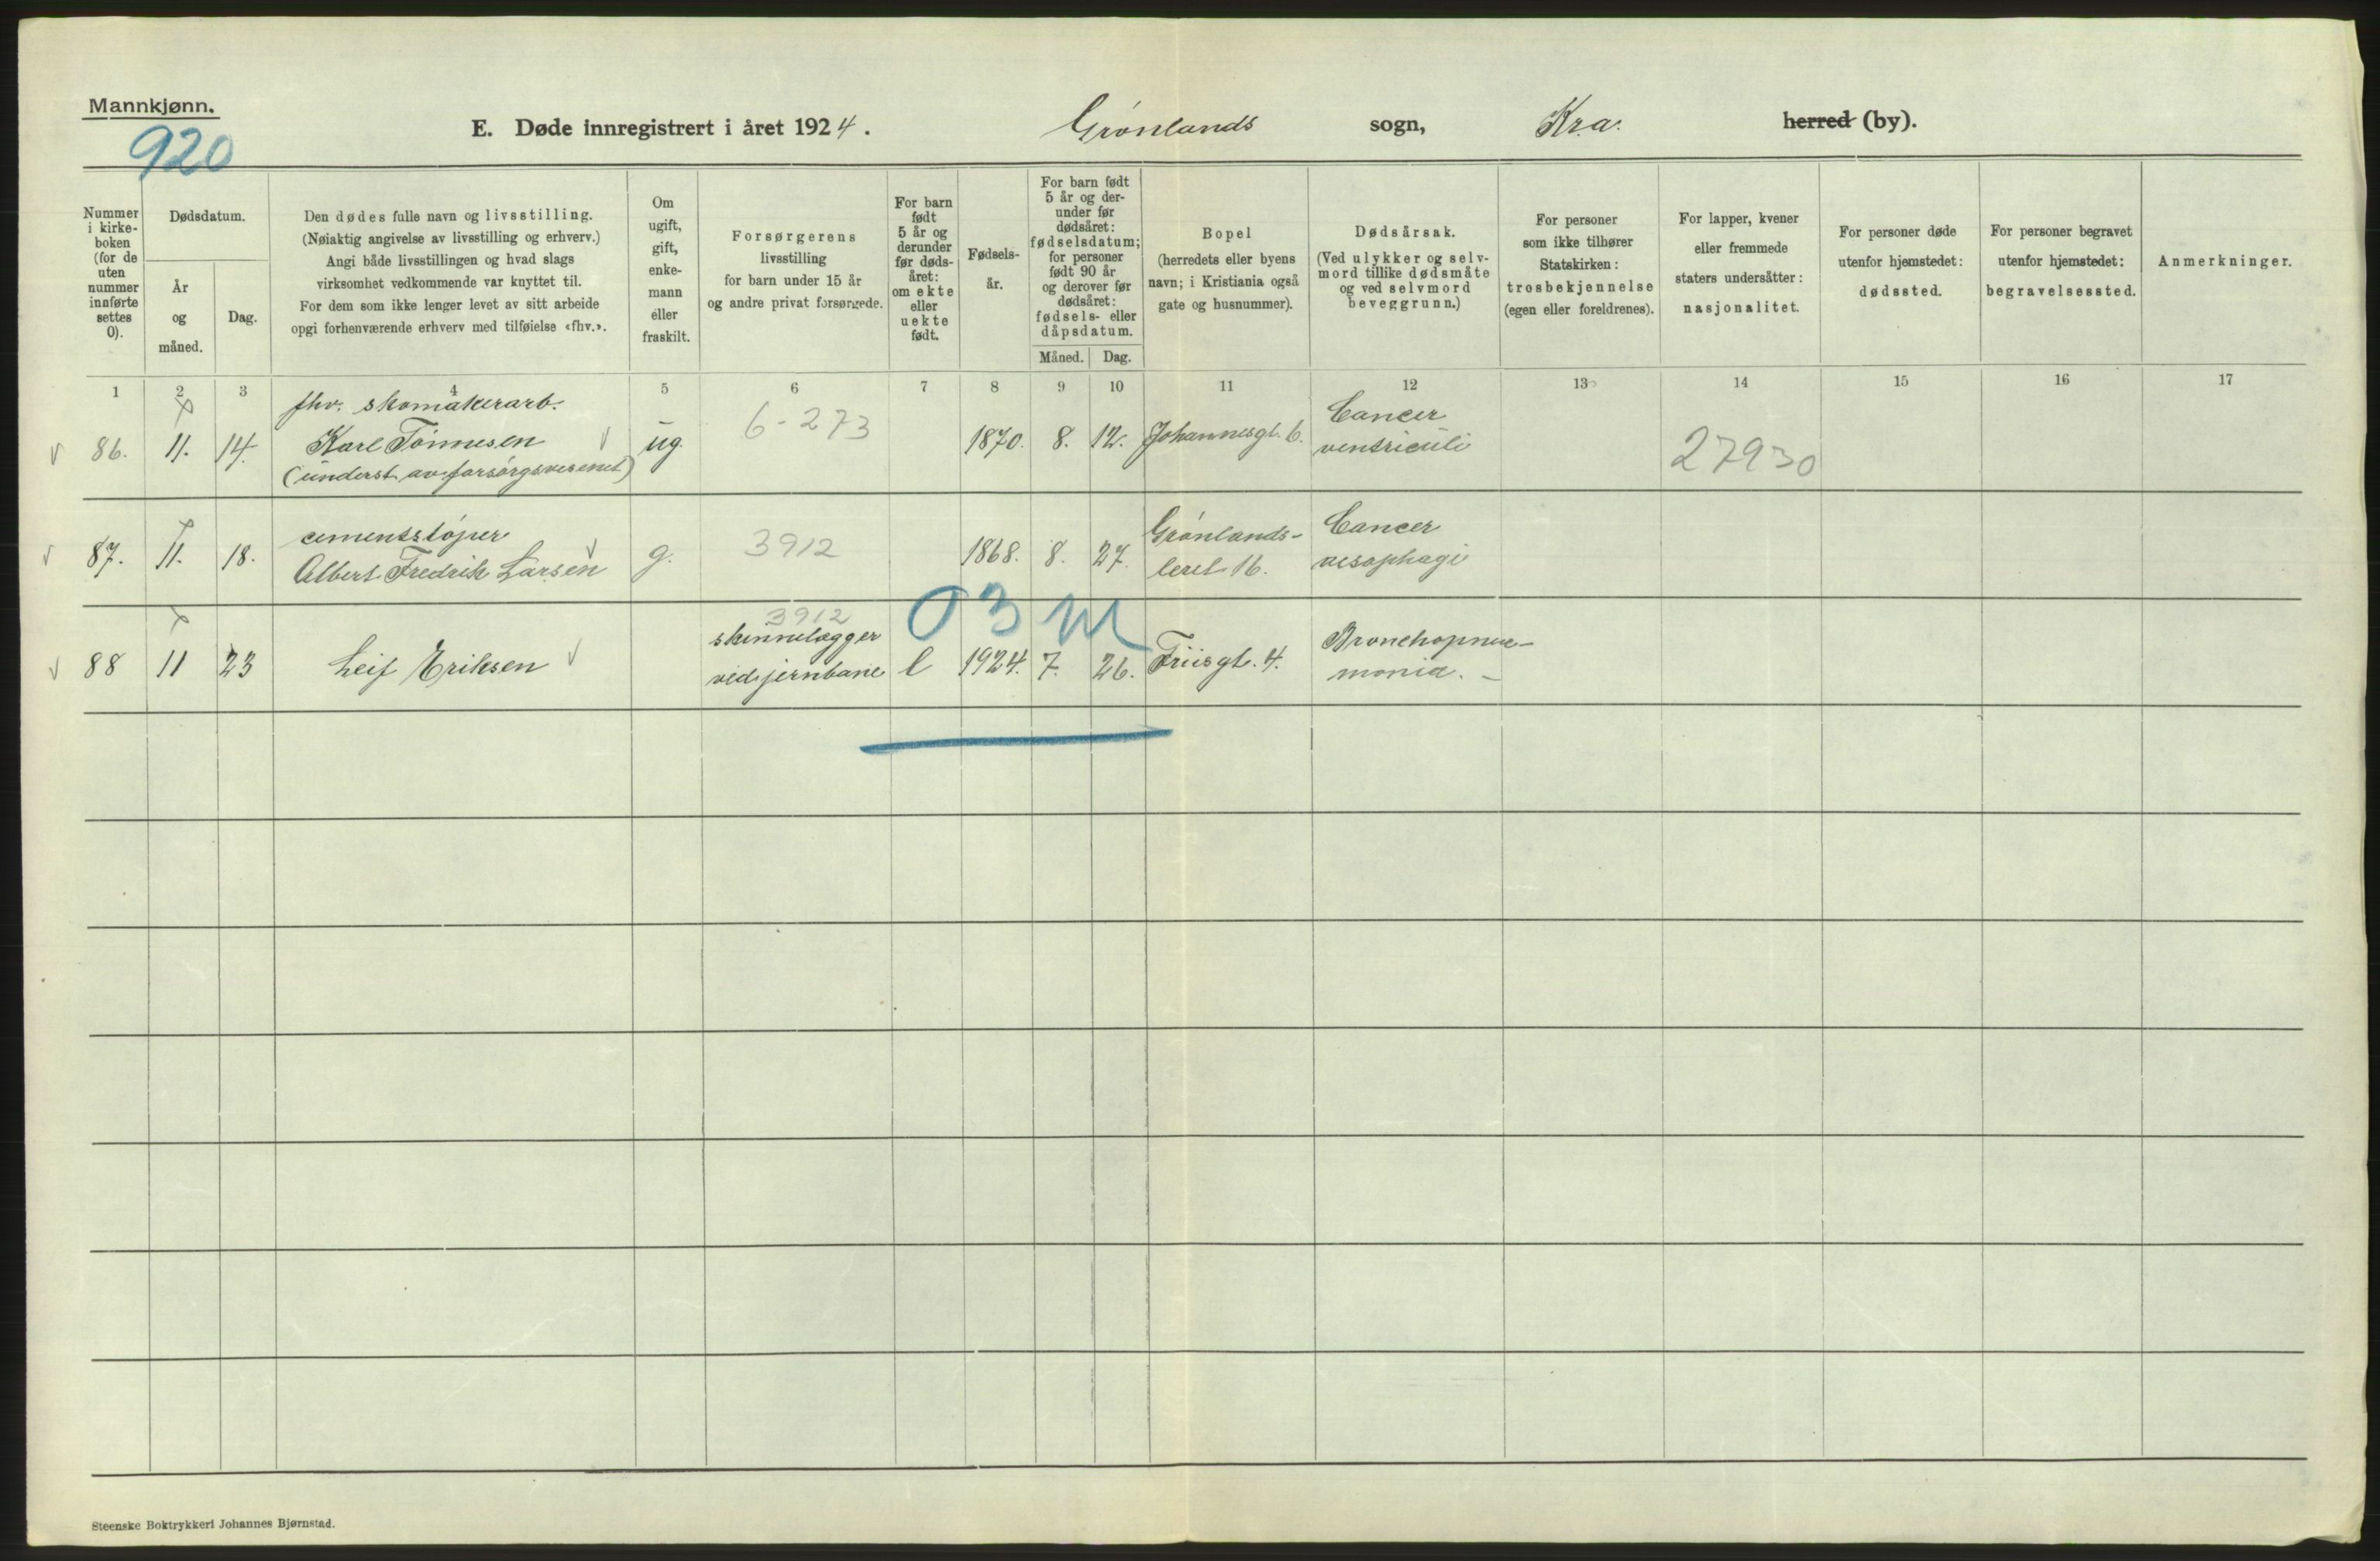 Mannkjønn.
920
E. Døde innregistrert i året 1924. Grønlands sogn, Kr.a. herred (by).
Nummer i kirke-boken (for de uten nummer innførte settes 0).
Dødsdatum.
År og måned.
Dag.
Den dødes fulle navn og livsstilling.
(Nøiaktig angivelse av livsstilling og erhverv.)
Angi både livsstillingen og hvad slags
virksomhet vedkommende var knyttet til.
For dem som ikke lenger levet av sitt arbeide
opgi forhenværende erhverv med tilføielse «fhv.».
Om ugift, gift, enke-mann eller fraskilt.
Forsørgerens
livsstilling
for barn under 15 år
og andre privat forsørgede.
For barn født 5 år og derunder før døds-året: om ekte eller uekte født.
Fødsels-år.
For barn født 5 år og der-under før dødsåret: fødselsdatum; for personer født 90 år og derover før dødsåret: fødsels- eller dåpsdatum.
Måned.
Dag.
Bopel
(herredets eller byens
navn; i Kristiania også
gate og husnummer).
Dødsårsak.
(Ved ulykker og selv-
mord tillike dødsmåte
og ved selvmord
beveggrunn.)
For personer
som ikke tilhører
Statskirken:
trosbekjennelse
(egen eller foreldrenes).
For lapper, kvener
eller fremmede
staters undersåtter:
nasjonalitet.
For personer døde
utenfor hjemstedet:
dødssted.
For personer begravet
utenfor hjemstedet:
begravelsessted.
Anmerkninger.
1 2 3 4 5 6 7 8 9 10 11 12 13 14 15 16 17
fhv. skomakerarb.
86. 11. 14. Karl Tönnesen ug. 6-273 1870. 8. 12. Johannesgt. 6. Cancer
ventriculi 27930
(underst. av forsörgsvesenet)
cementstöper
87. 11. 18. Albert Fredrik Larsen g. 3912 1868. 8. 27. Grönlands-
leret 16. Cancer
oesophagi
3912
03 M
88 11 23 Leif Eriksen skinnelægger
ved jernbane 1924. 7. 26. Friisgt. 4. Bronchopneu-
monia. -
Steenske Boktrykkeri Johannes Bjørnstad.